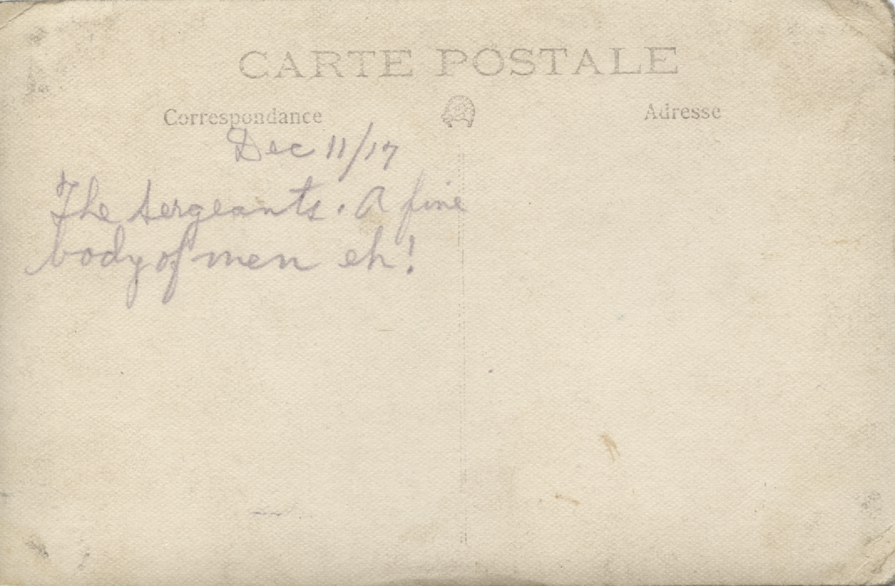 CARTE POSTALE
Correspondance Adresse
Dec 11/17
The sergeants. A fine
body of men eh!